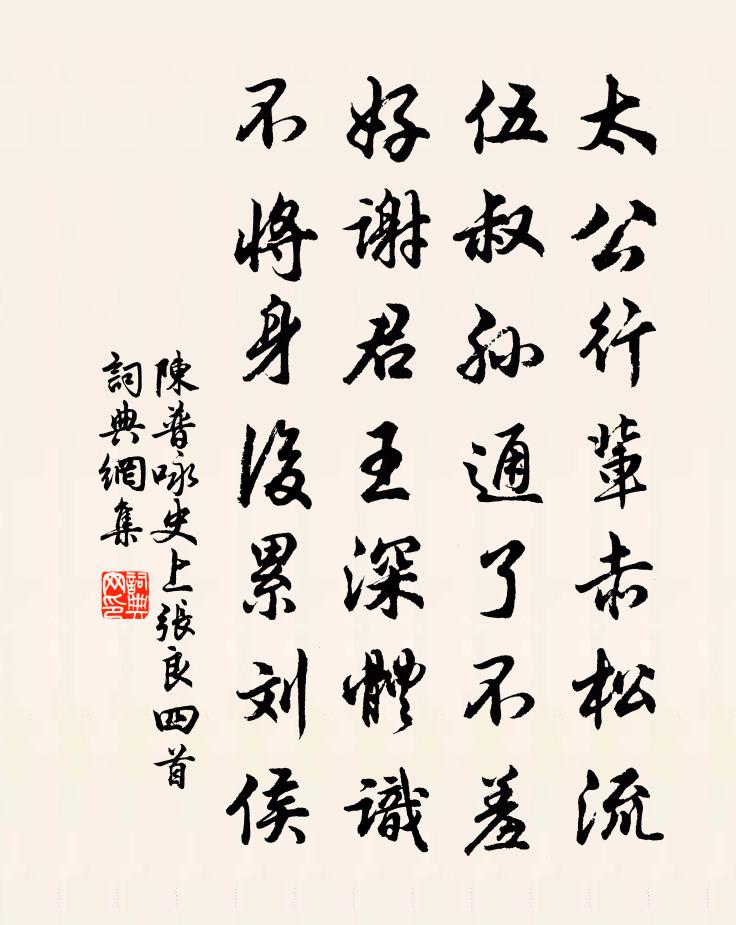 太公行輩赤松流
伍叔孙通了不羞
好謝君王深體識
不將身後累刘侯
陳普咏史上張良四首
詞典網集
詞典网印